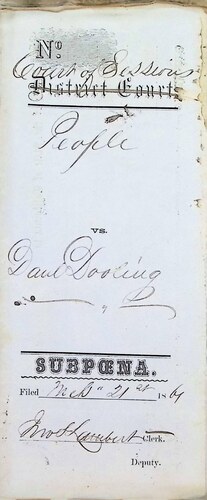 No
Court of Sessions
District Court
People
vs.
Danl Dooling
SUBPŒNA.
Filed Mch 21st 1861
Jno S Lambert Clerk.
Deputy.